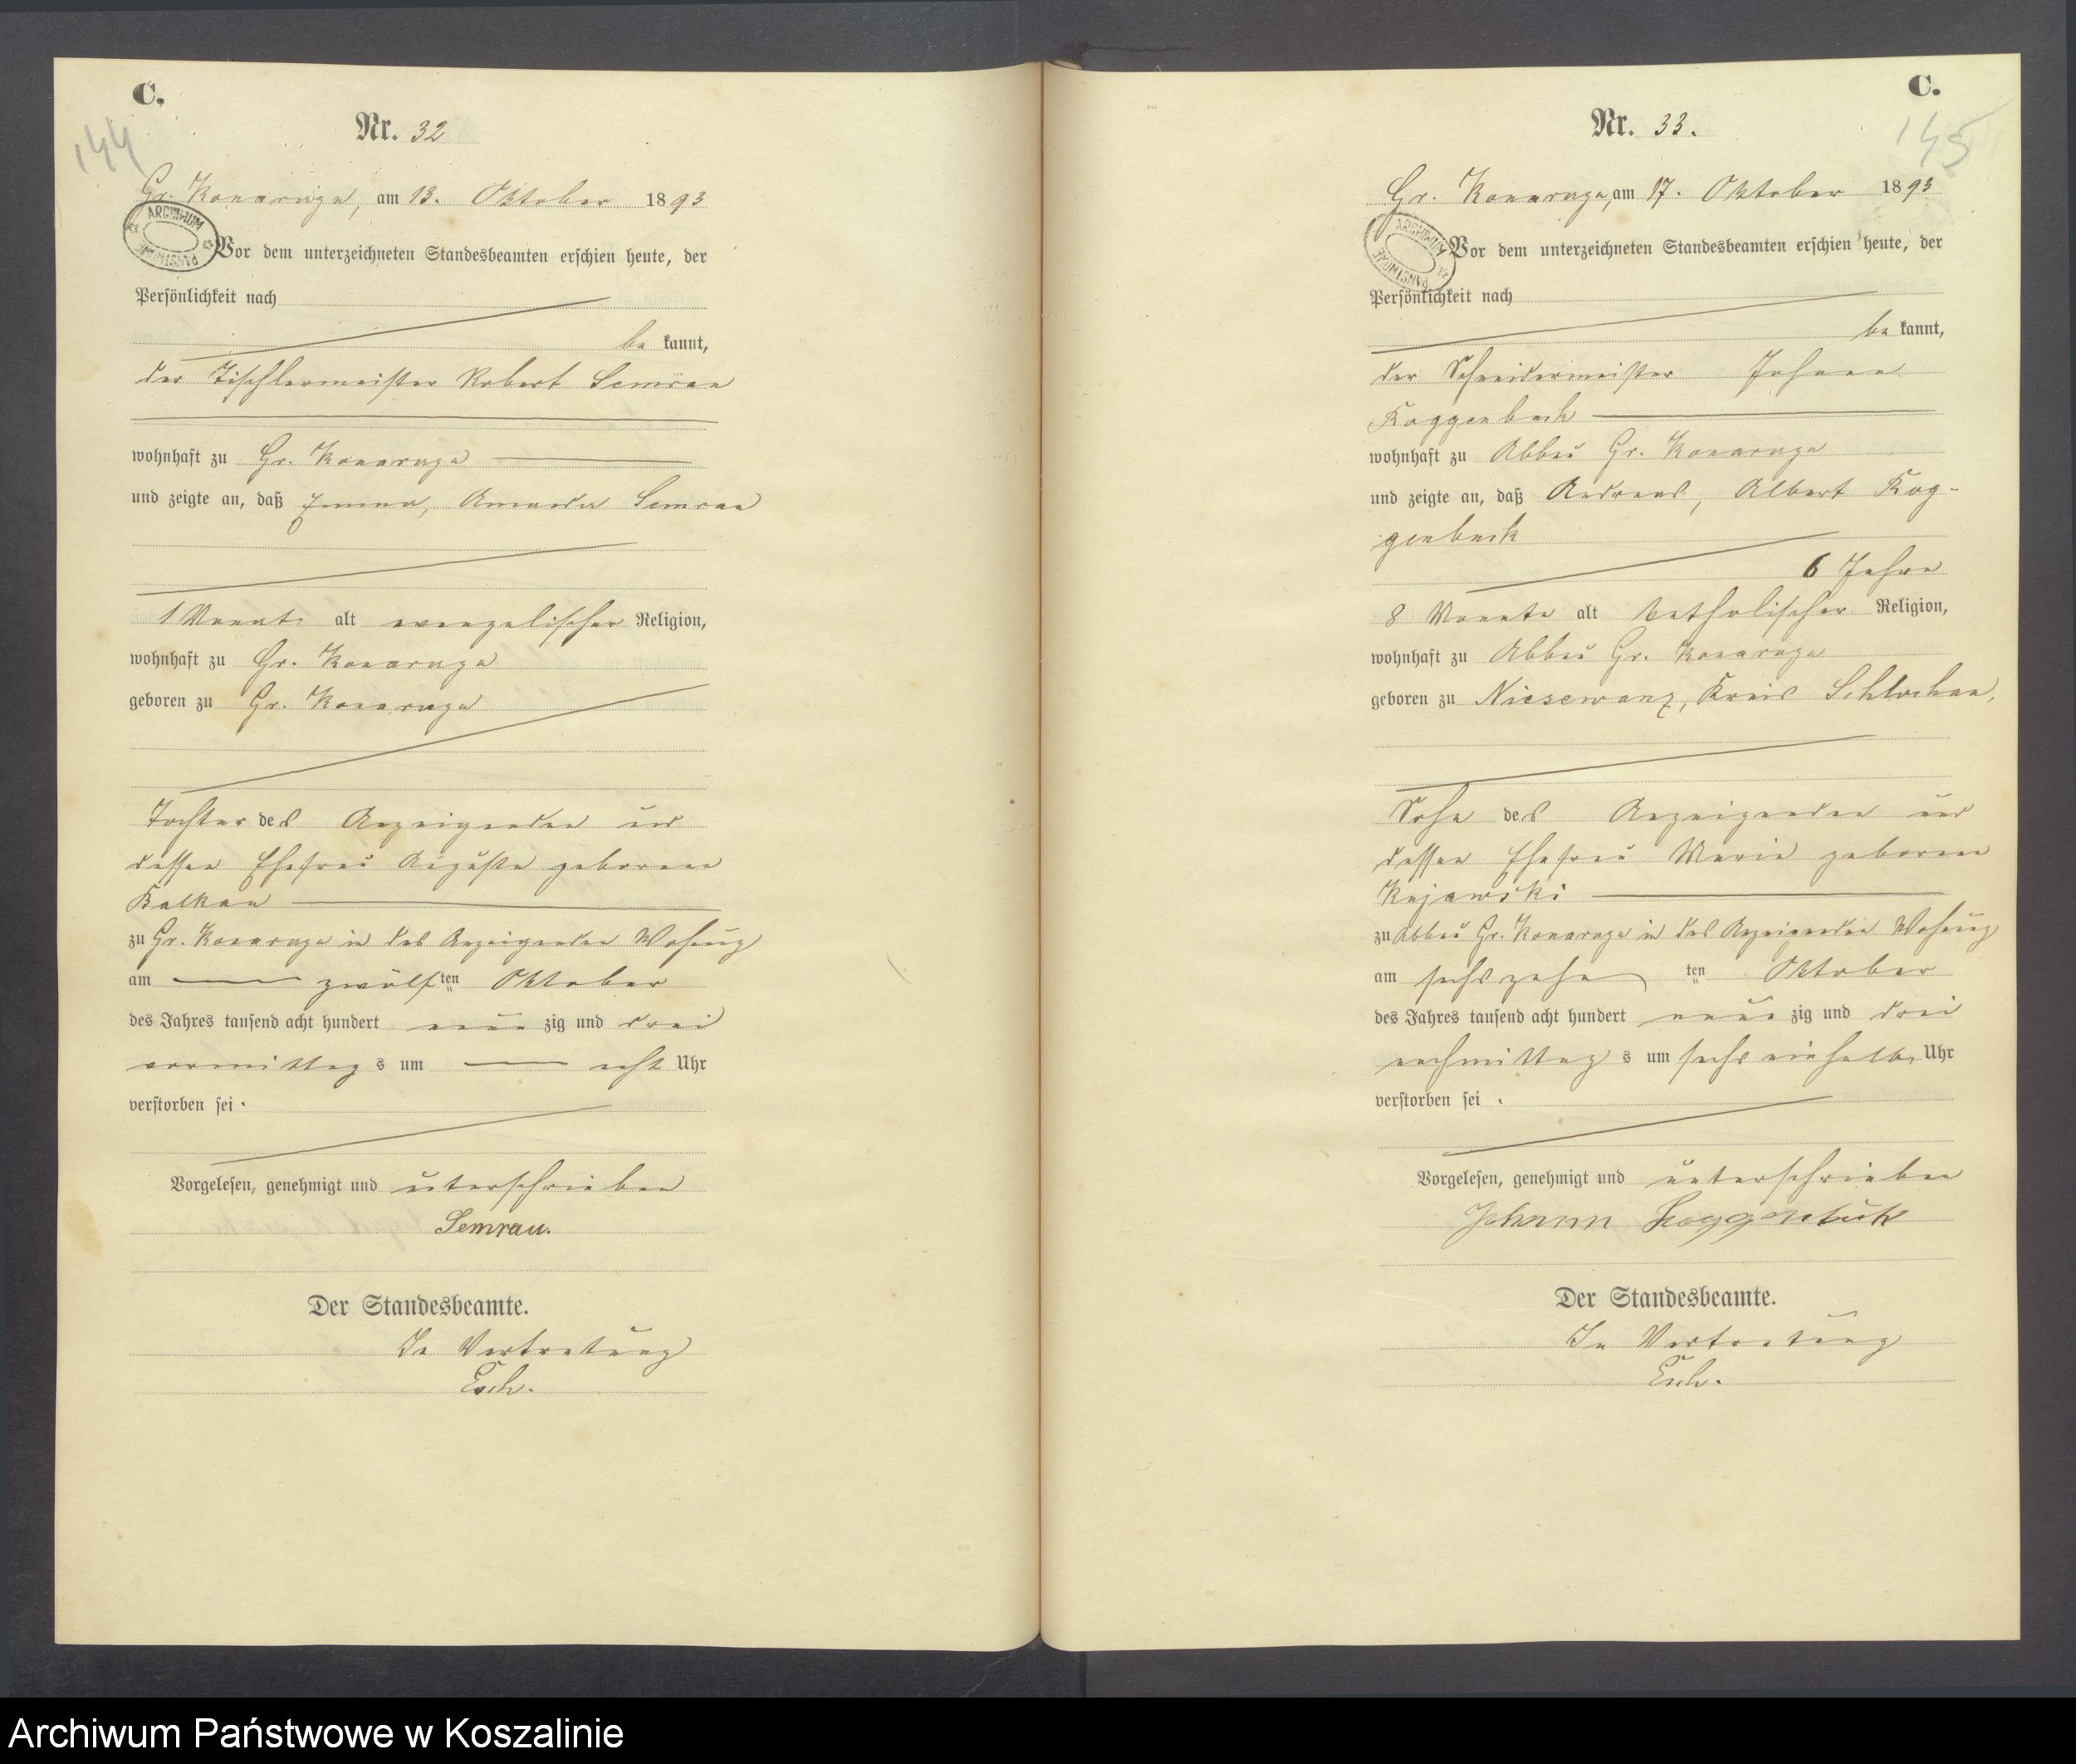 C.
144
Nr. 32
Gr. Konarzyn, am 13. Oktober 1893
ARCHIWUM PAŃSTWOWE
Vor dem unterzeichneten Standesbeamten erschien heute, der
Persönlichkeit nach
be kannt,
der Tischlermeister Robert Semrau
wohnhaft zu Gr. Konarzyn
und zeigte an, daß Emma, Amanda Semrau
1 Monat alt evangelischer Religion,
wohnhaft zu Gr. Konarzyn
geboren zu Gr. Konarzyn
Tochter des Anzeigenden und
dessen Ehefrau Auguste geborene
Balkau
zu Gr. Konarzyn in des Anzeigenden Wohnung
am zwölften Oktober
des Jahres tausend acht hundert neun zig und drei
vormittag s um acht Uhr
verstorben sei.
Vorgelesen, genehmigt und unterschrieben
Semrau.
Der Standesbeamte.
In Vertretung
Esch.
C.
145
Nr. 33.
Gr. Konarzyn, am 17. Oktober 1893
ARCHIWUM PAŃSTWOWE
Vor dem unterzeichneten Standesbeamten erschien heute, der
Persönlichkeit nach
be kannt,
der Schneidermeister Johann
Roggenbuck
wohnhaft zu Abbau Gr. Konarzyn
und zeigte an, daß Andreas, Albert Rog-
genbuck
6 Jahre
8 Monate alt katholischer Religion,
wohnhaft zu Abbau Gr. Konarzyn
geboren zu Niesewanz, Kreis Schlochau,
Sohn des Anzeigenden und
dessen Ehefrau Marie geborene
Kujawski
zu Abbau Gr. Konarzyn in des Anzeigenden Wohnung
am sechszehn ten Oktober
des Jahres tausend acht hundert neun zig und drei
nachmittag s um sechs einhalb Uhr
verstorben sei.
Vorgelesen, genehmigt und unterschrieben
Johann Roggenbuck
Der Standesbeamte.
In Vertretung
Esch.
Archiwum Państwowe w Koszalinie